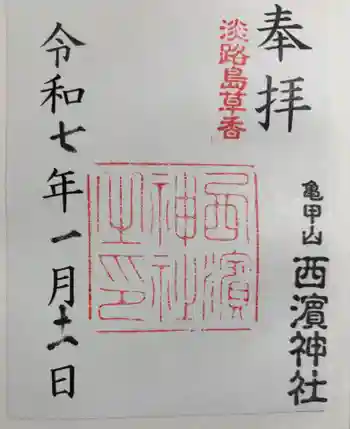 奉拝
淡路島草香
亀甲山
西濱神社
西濱神社之印
令和七年一月十一日